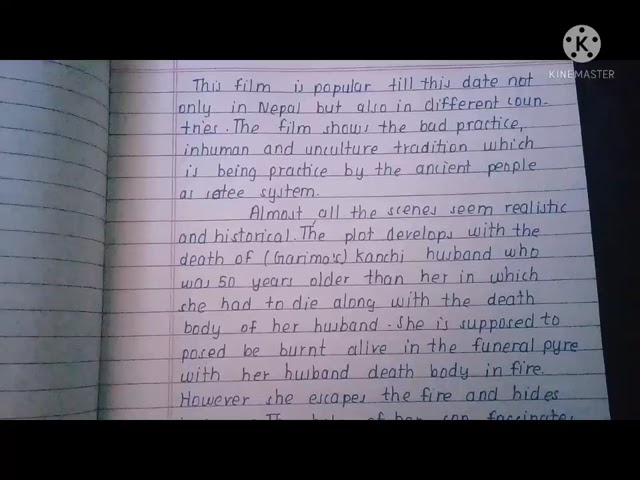 K
KINEMASTER
This film is papular till this date not
only in Nepal but also in different coun-
tries. The film shows the bad practice,
inhuman and unculture tradition which
is being practice by the ancient people
as setee system.
Almost all the scenes seem realistic
and historical. The plot develops with the
death of (Garima's) Kanchi husband who
was 50 years older than her in which
she had to die along with the death
body of her husband. She is supposed to
posed be burnt alive in the funeral pyre
with her husband death body in fire.
However she escapes the fire and hides